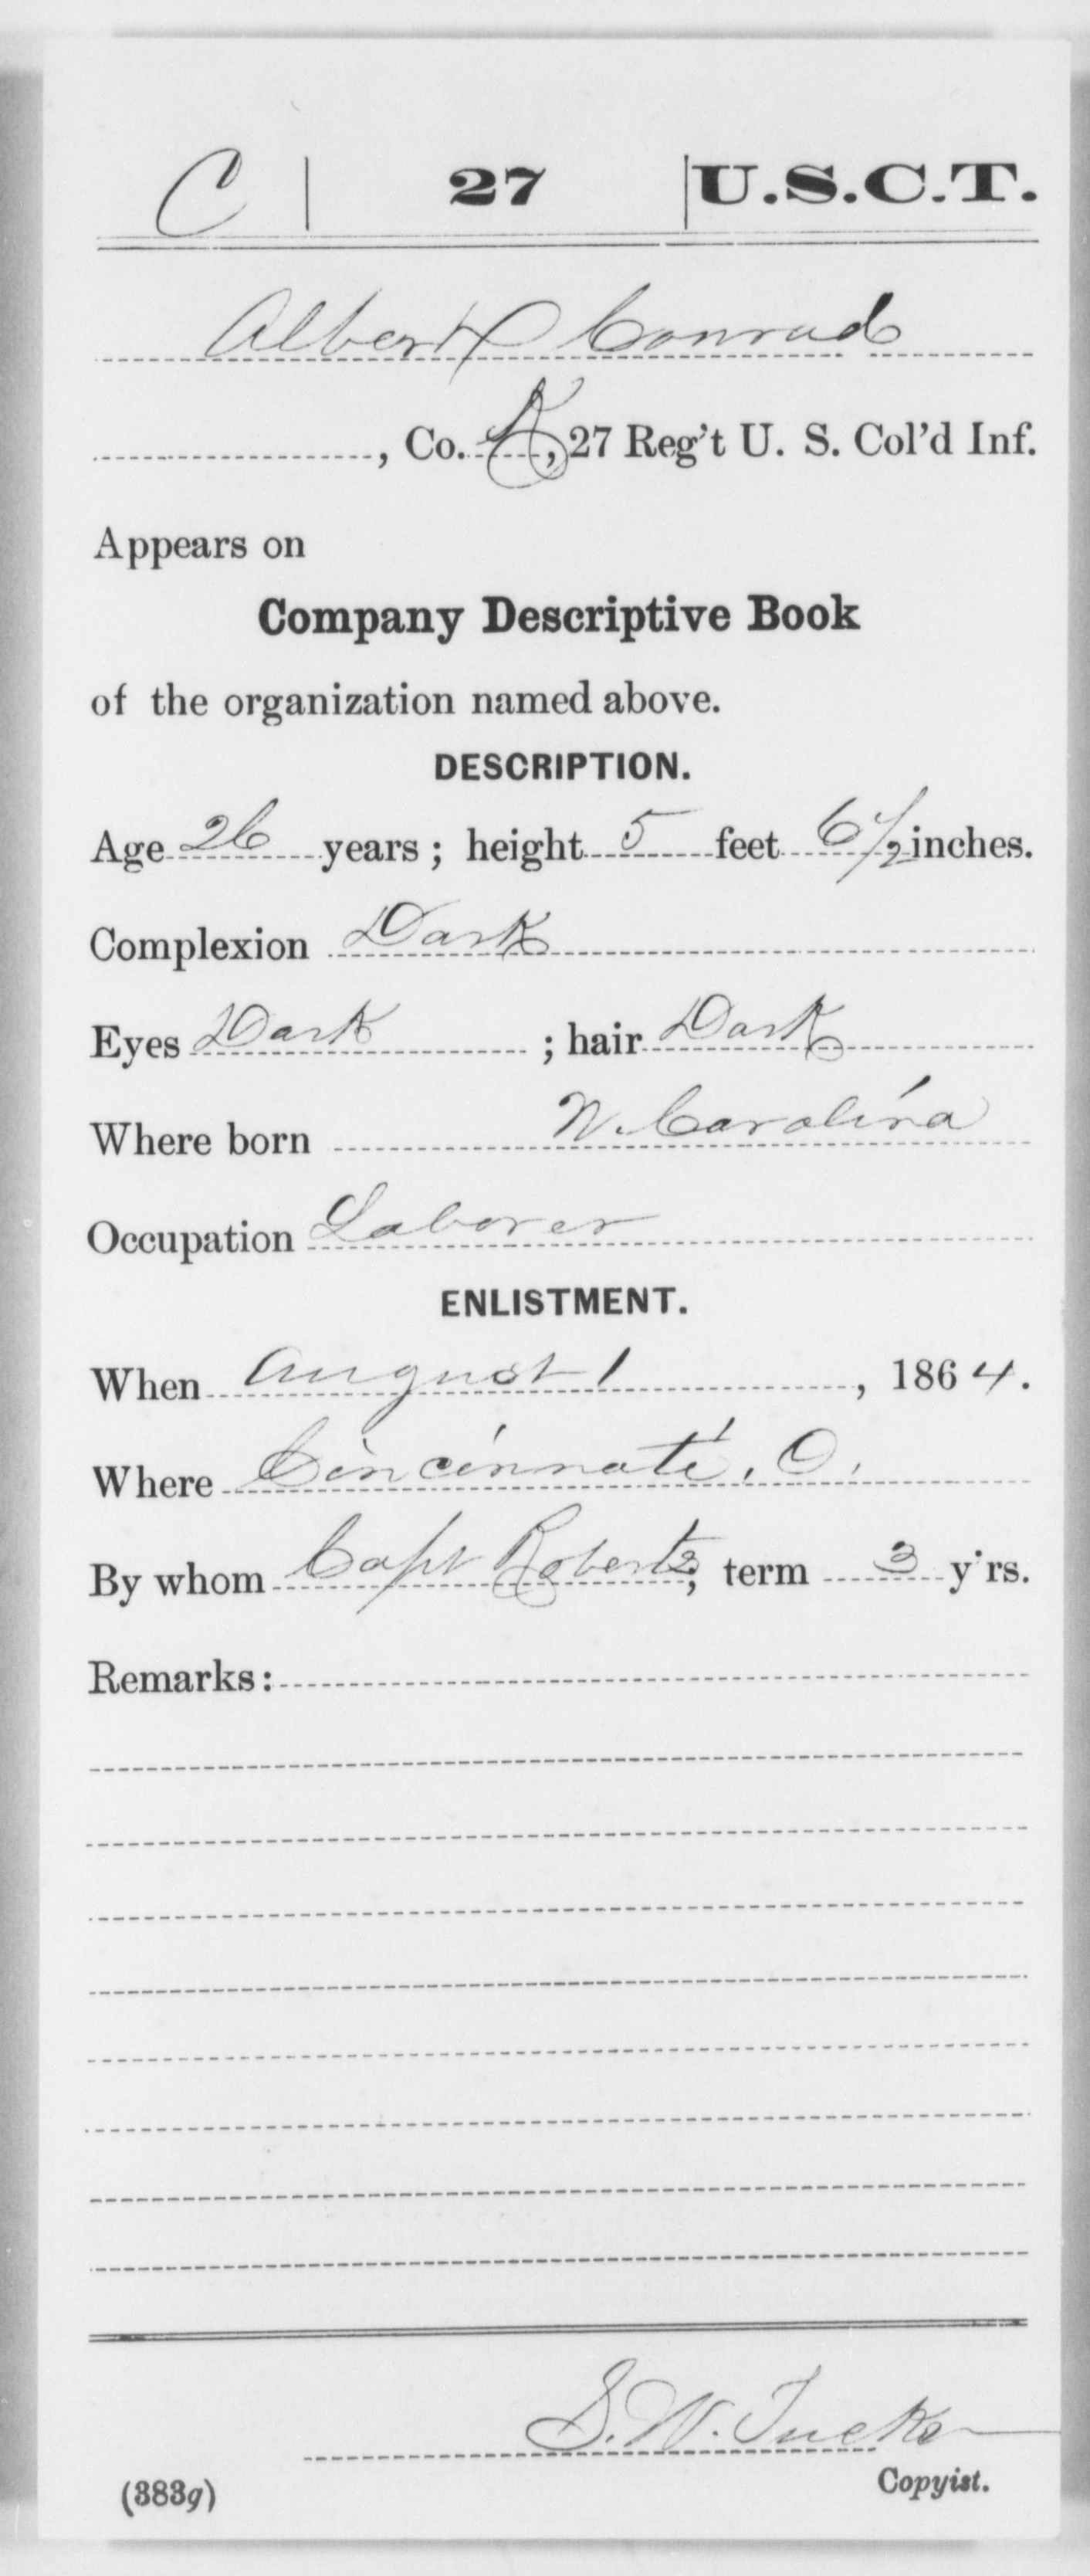 C | 27 | U.S.C.T.
Albert Conrad
, Co. K, 27 Reg't U. S. Col'd Inf.
Appears on
Company Descriptive Book
of the organization named above.
DESCRIPTION.
Age 26 years; height 5 feet 6 1/2 inches.
Complexion Dark
Eyes Dark ; hair Dark
Where born N. Carolina
Occupation Laborer
ENLISTMENT.
When August 1, 1864.
Where Cincinnati, O.
By whom Capt Roberts; term 3 y'rs.
Remarks:
S. W. Tucker
Copyist.
(383g)